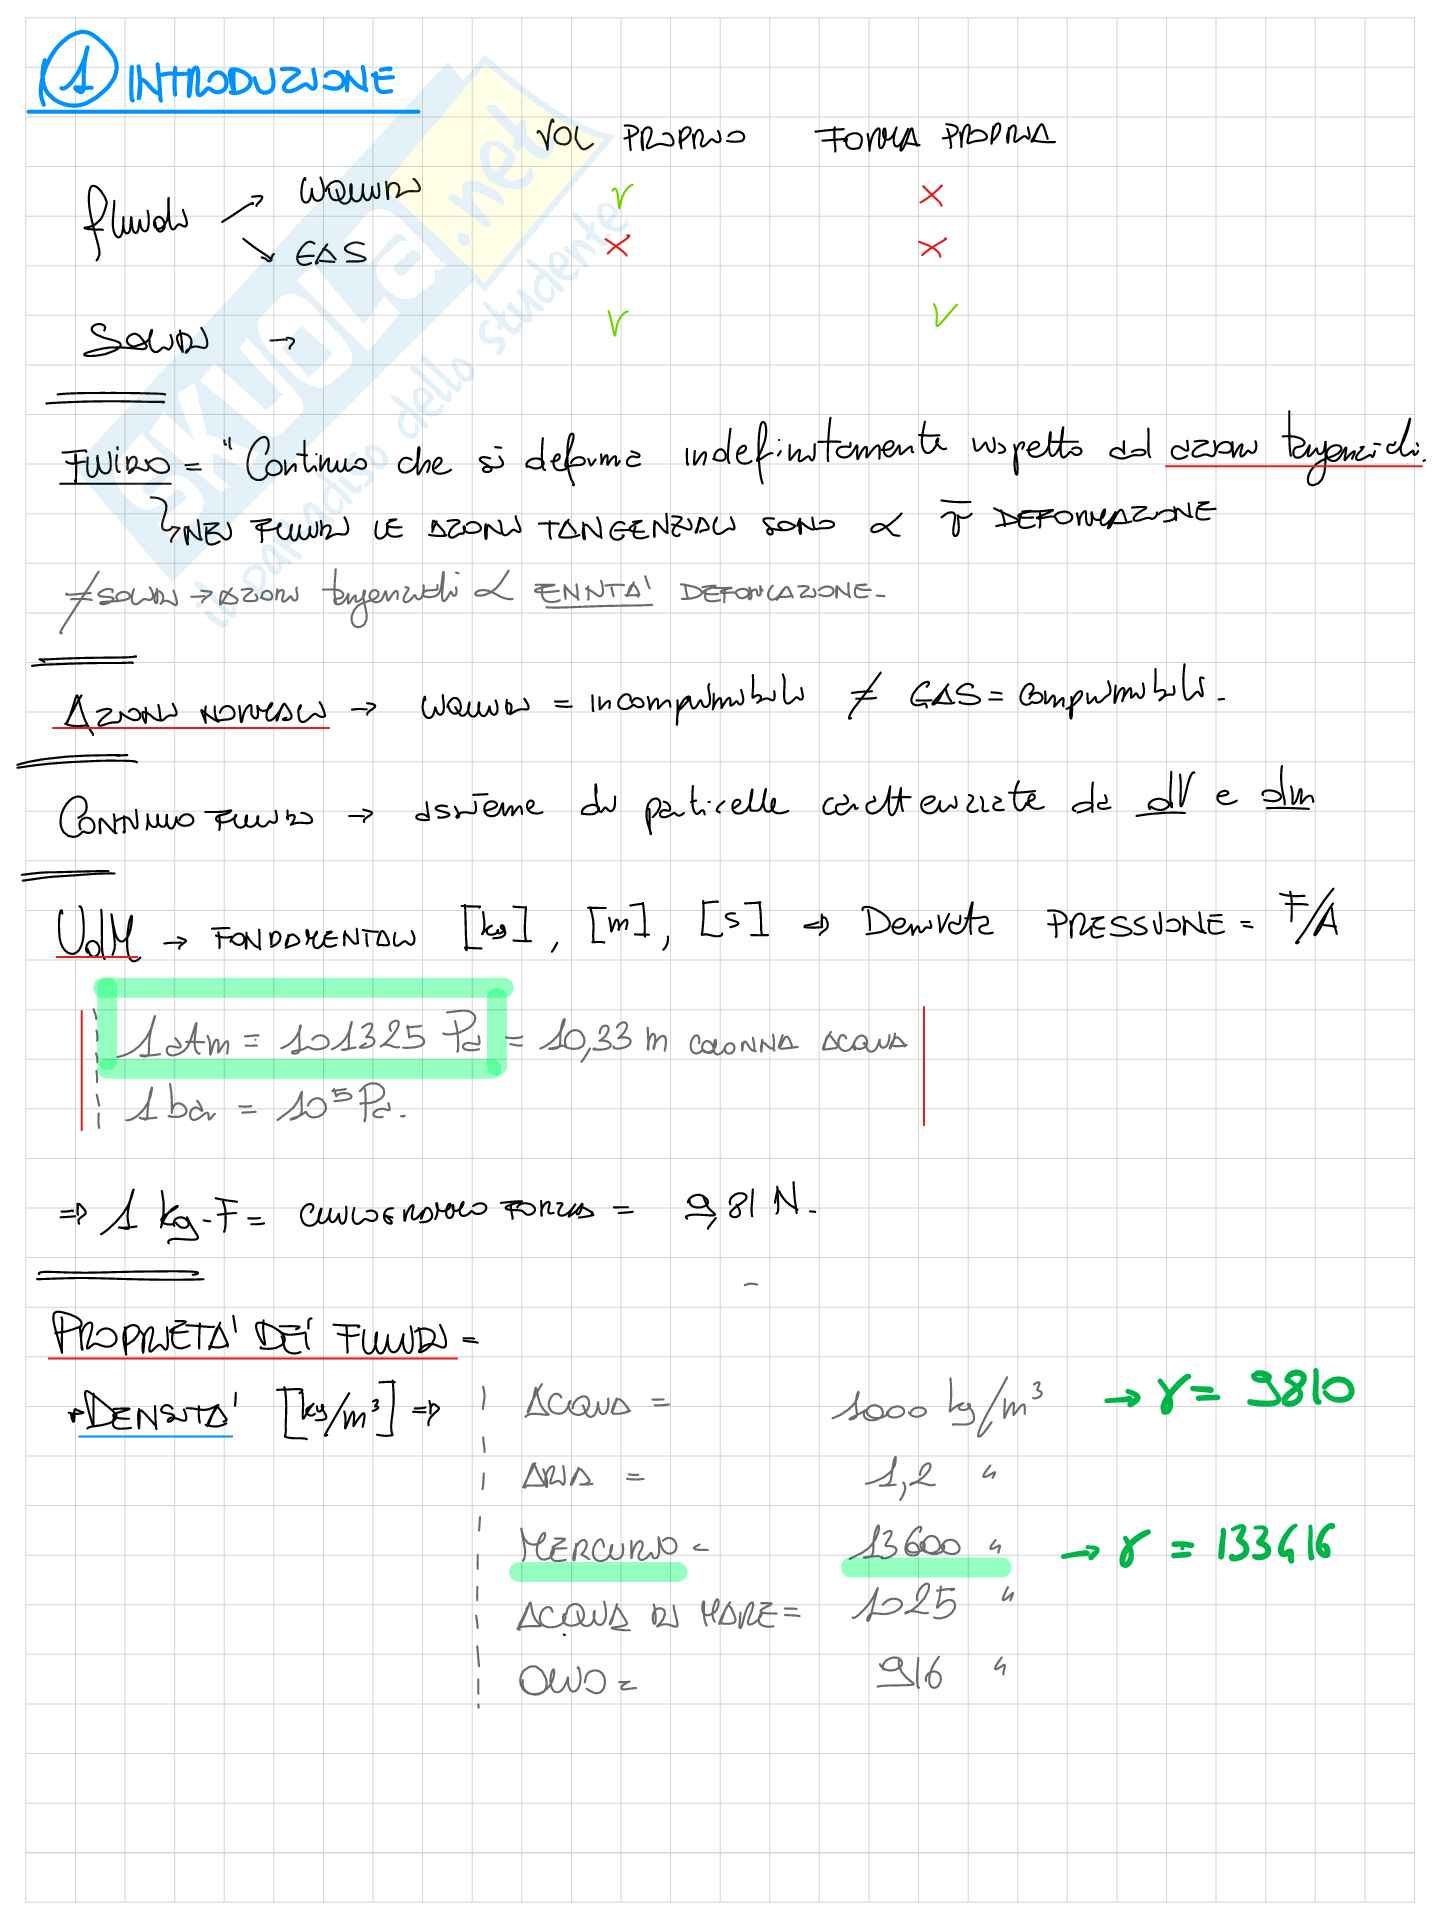 1 INTRODUZIONE
VOL PROPRIO FORMA PROPRIA
fluidi → LIQUIDI V X
↘ GAS X X
SOLIDI → V V
FLUIDO = "Continuo che si deforma indefinitamente rispetto ad azioni tangenziali.
↳ NEI FLUIDI LE AZIONI TANGENZIALI SONO ∝ DEFORMAZIONE
≠ SOLIDI → AZIONI tangenziali ∝ ENTITA' DEFORMAZIONE-
AZIONI NORMALI → LIQUIDI = incomprimibili ≠ GAS = comprimibili.
CONTINUO FLUIDO → assieme di particelle caratterizzate da dV e dm
UdM → FONDAMENTALI [kg], [m], [s] ⇒ Derivata PRESSIONE = F/A
1 atm = 101325 Pa = 10,33 m COLONNA ACQUA
1 bar = 10⁵ Pa.
⇒ 1 kg-F = CHILOGRAMMO FORZA = 9,81 N.
PROPRIETA' DEI FLUIDI =
DENSITA' [kg/m³] ⇒ ACQUA = 1000 kg/m³ → γ = 9810
ARIA = 1,2 "
MERCURIO = 13600 " → γ = 133416
ACQUA DI MARE = 1025 "
OLIO = 916 "
SKUOLA.net
il paradiso dello studente